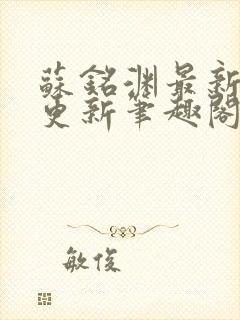 蘇銘淵最新
更新筆趣閣
敏俊